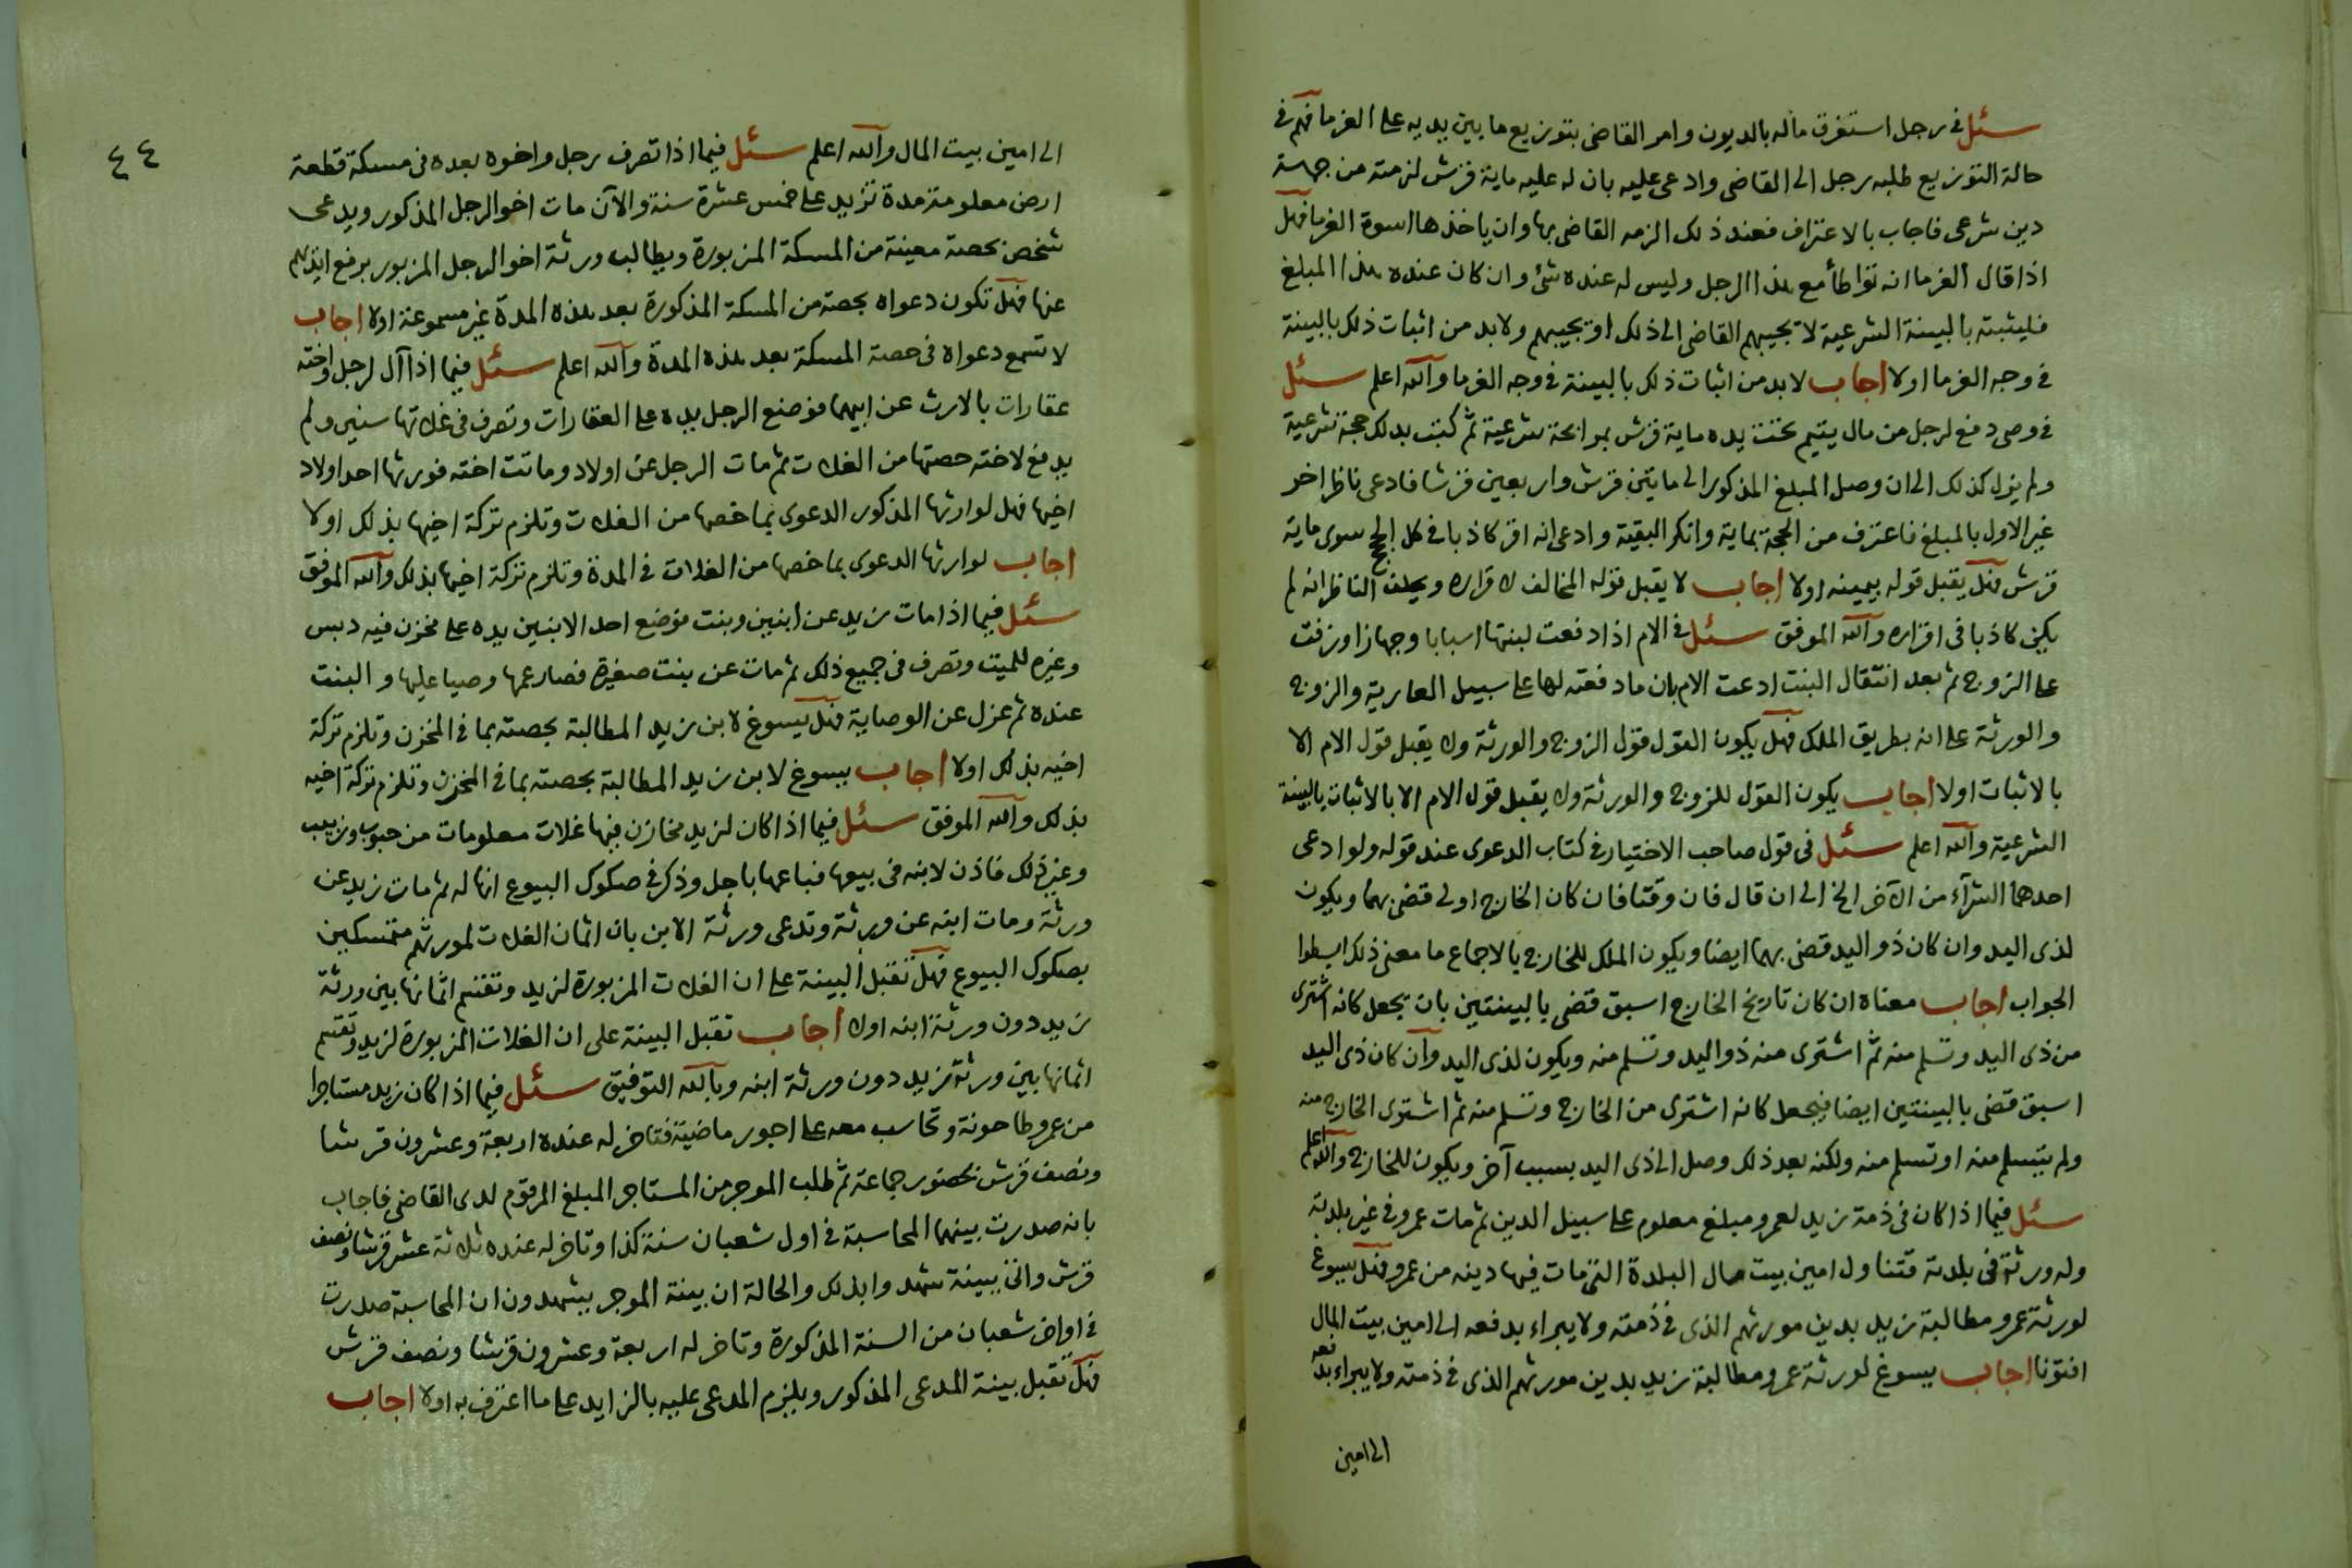 سئل فى رجل استغرق ماله بالديون وامر القاضى بتوزيع ما بين يديه على الغرما فهم فى
حالة التوزيع طلبه رجل الى القاضى وادعى عليه بان له عليه ماية قرش لزمته من جهة
دين شرعى فاجاب بالاعتراف فعند ذلك الزمه القاضى بها وان ياخذها اسوة الغرما فهل
اذا قال الغرما انه تواطأ مع هذا الرجل وليس له عنده شئ وان كان عنده هذا المبلغ
فليثبته بالبينة الشرعية لا يجيبهم القاضى الى ذلك او يجيبهم ولا بد من اثبات ذلك بالبينة
فى وجه الغرما اولا اجاب لابد من اثبات ذلك بالبينة فى وجه الغرما والله اعلم سئل
فى وصى دفع لرجل من مال يتيم تحت يده ماية قرش بمرابحة شرعية ثم كتب بذلك حجة شرعية
ولم يزل كذلك الى ان وصل المبلغ المذكور الى مايتين قرش واربعين قرشا فادعى ناظر اخر
غير الاول بالمبلغ فاعترف من الحجة بماية وانكر البقية وادعى انه اقر كاذبا فى كل الحجج سوى ماية
قرش فهل يقبل قوله بيمينه اولا اجاب لا يقبل قوله المخالف لاقراره ويحلف الناظر انه لم
يكن كاذبا فى اقراره والله الموفق سئل فى الام اذا دفعت لبنتها اسبابا وجهازا وزفت
على الزوج ثم بعد انتقال البنت ادعت الام بان ما دفعته لها على سبيل العارية والزوج
والورثة على انه بطريق الملك فهل يكون القول قول الزوج والورثة ولا يقبل قول الام الا
بالاثبات اولا اجاب يكون القول للزوج والورثة ولا يقبل قول الام الا بالاثبات بالبينة
الشرعية والله اعلم سئل فى قول صاحب الاختيار فى كتاب الدعوى عند قوله ولو ادعى
احدهما الشرآء من الآخر الخ الى ان قال فان وقتا فان كان الخارج اولى قضى بهما ويكون
لذى اليد وان كان ذو اليد قضى بهما ايضا ويكون الملك للخارج بالاجماع ما معنى ذلك ابسطوا
الجواب اجاب معناه ان كان تاريخ الخارج اسبق قضى بالبينتين بان يجعل كانه اشترى
من ذى اليد وتسلم منه ثم اشترى منه ذو اليد وتسلم منه ويكون لذى اليد وان كان ذى اليد
اسبق قضى بالبينتين ايضا فيجعل كانه اشترى من الخارج وتسلم منه ثم اشترى الخارج منه
ولم يتسلم منه او تسلم منه ولكنه بعد ذلك وصل الى ذى اليد بسبب آخر ويكون للخارج والله اعلم
سئل فيما اذا كان فى ذمة زيد لعمرو مبلغ معلوم على سبيل الدين ثم مات عمرو فى غير بلدته
وله ورثة فى بلدته فتناول امين بيت مال البلدة التى مات فيها دينه من عمرو فهل يسوغ
لورثة عمرو مطالبة زيد بدين مورثهم الذى فى ذمته ولا يبراء بدفعه الى امين بيت المال
افتونا اجاب يسوغ لورثة عمرو مطالبة زيد بدين مورثهم الذى فى ذمته ولا يبراء بدفعه
الى امين
٤٤
الى امين بيت المال والله اعلم سئل فيما اذا تصرف رجل واخوه بعده فى مسكة قطعة
ارض معلومة مدة تزيد على خمس عشرة سنة والآن مات اخو الرجل المذكور ويدعى
شخص بحصة معينة من المسكة المزبورة ويطالب ورثة اخو الرجل المزبور برفع ايديهم
عنها فهل تكون دعواه بحصة من المسكة المذكورة بعد هذه المدة غير مسموعة اولا اجاب
لا تسمع دعواه فى حصة المسكة بعد هذه المدة والله اعلم سئل فيما اذا آل لرجل واخته
عقارات بالارث عن ابيهما فوضع الرجل يده على العقارات وتصرف فى غلاتها سنين ولم
يدفع لاخته حصتها من الغلات ثم مات الرجل عن اولاد وماتت اخته فورثها احد اولاد
اخيها فهل لوارثها المذكور الدعوى بما خصها من الغلات وتلزم تركة اخيها بذلك اولا
اجاب لوارثها الدعوى بما خصها من الغلات فى المدة وتلزم تركة اخيها بذلك والله الموفق
سئل فيما اذا مات زيد عن ابنين وبنت فوضع احد الابنين يده على مخزن فيه دبس
وغيره للميت وتصرف فى جميع ذلك ثم مات عن بنت صغيرة فصار عمها وصيا عليها والبنت
عنده ثم عزل عن الوصاية فهل يسوغ لابن زيد المطالبة بحصته بما فى المخزن وتلزم تركة
اخيه بذلك اولا اجاب يسوغ لابن زيد المطالبة بحصته بما فى المخزن وتلزم تركة اخيه
بذلك والله الموفق سئل فيما اذا كان لزيد مخازن فيها غلات معلومات من حبوب وزبيب
وغير ذلك فاذن لابنه فى بيعها فباعها باجل وذكر فى صكوك البيوع انها له ثم مات زيد عن
ورثة ومات ابنه عن ورثة وتدعى ورثة الابن بان اثمان الغلات لمورثهم متمسكين
بصكوك البيوع فهل تقبل البينة على ان الغلات المزبورة لزيد وتقتسم اثمانها بين ورثة
زيد دون ورثة ابنه اولا اجاب تقبل البينة على ان الغلات المزبورة لزيد وتقسم
اثمانها بين ورثة زيد دون ورثة ابنه وبالله التوفيق سئل فيما اذا كان زيد مستاجرا
من عمرو طاحونة وتحاسب معه على اجور ماضية فتاخر له عنده اربعة وعشرون قرشا
ونصف قرش بحضور جماعة ثم طلب الموجر من المستاجر المبلغ المرقوم لدى القاضى فاجاب
بانه صدرت بينهما المحاسبة فى اول شعبان سنة كذا وتاخر له عنده ثلاثة عشر قرشا ونصف
قرش واتى ببينة شهدوا بذلك والحالة ان بينة الموجر يشهدون ان المحاسبة صدرت
فى اواخر شعبان من السنة المذكورة وتاخر له اربعة وعشرون قرشا ونصف قرش
فهل تقبل بينة المدعى المذكور ويلزم المدعى عليه بالزايد على ما اعترف به اولا اجاب